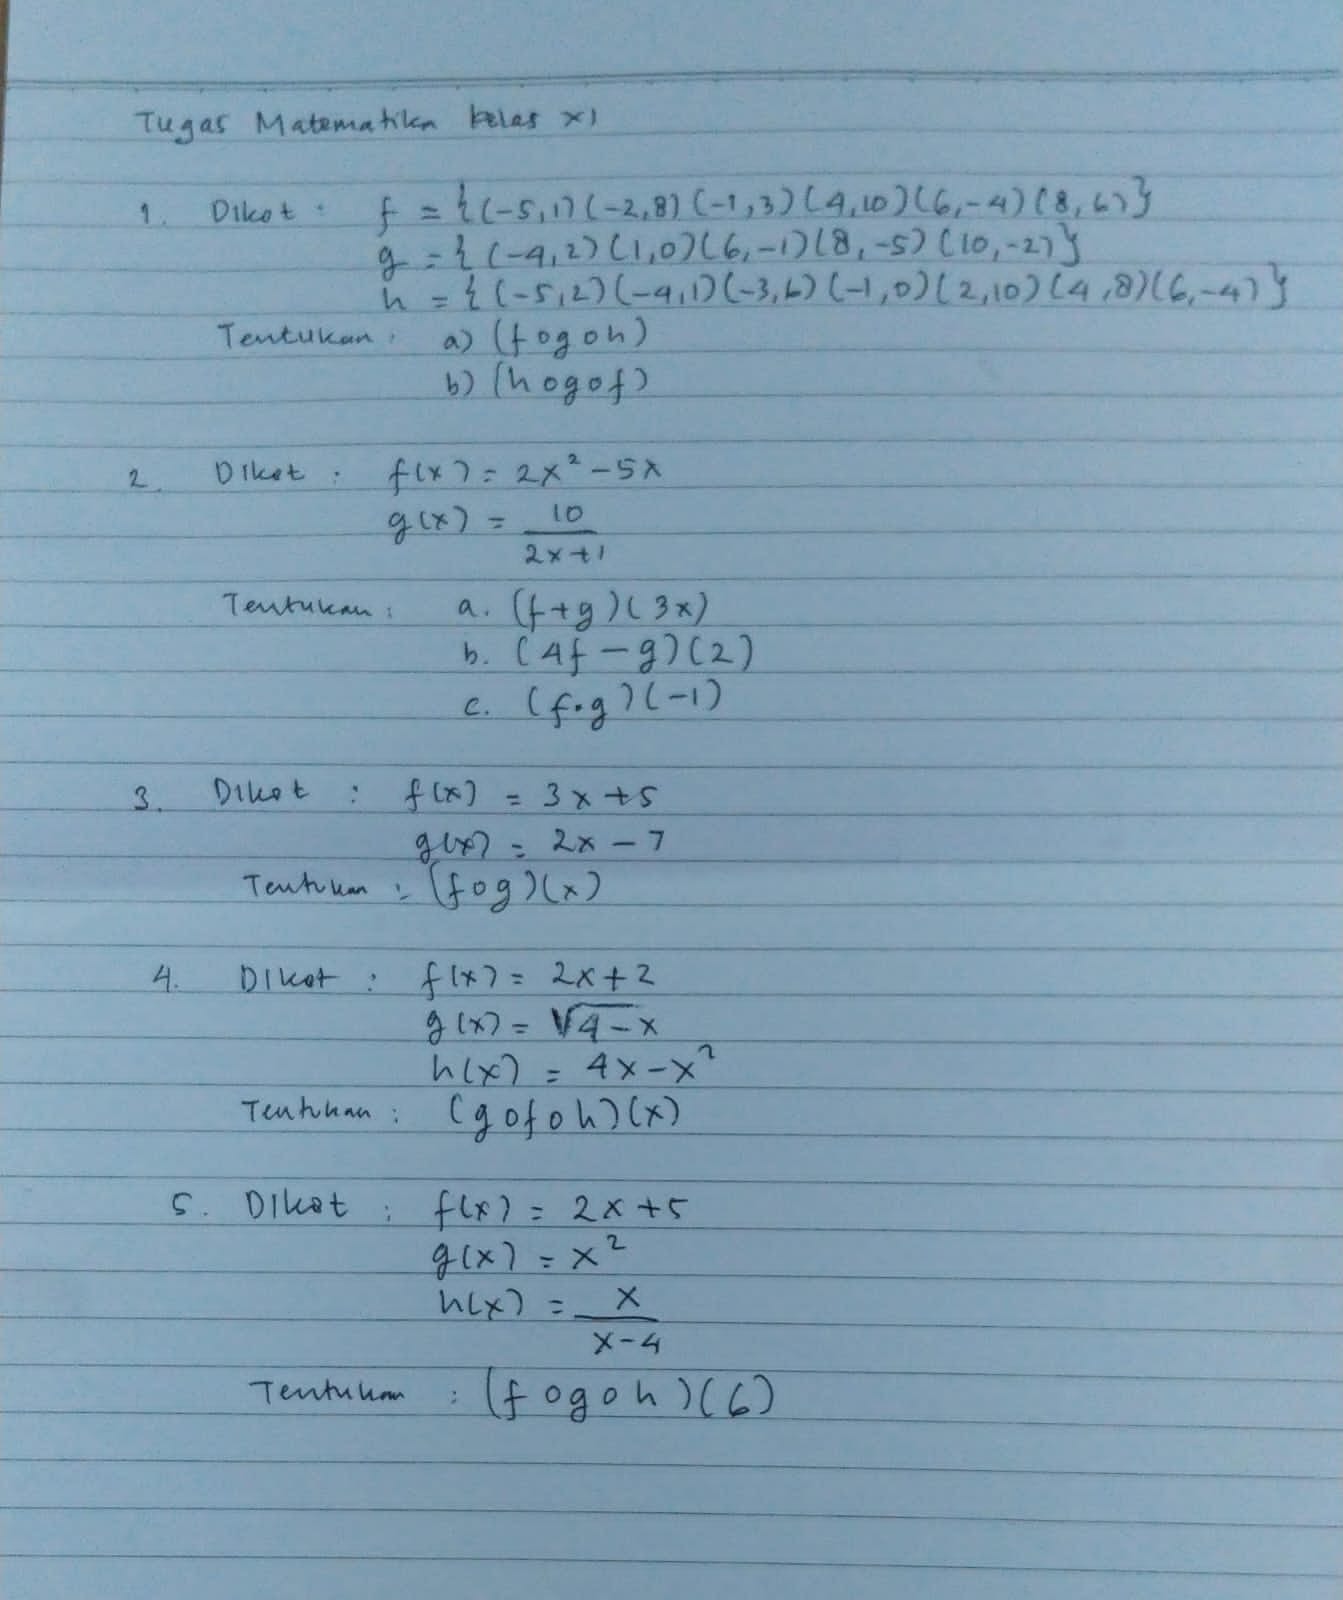 Tugas Matematika kelas XI
1. Diket : f = {(-5,1)(-2,8)(-1,3)(4,10)(6,-4)(8,6)}
g = {(-4,2)(1,0)(6,-1)(8,-5)(10,-2)}
h = {(-5,2)(-4,1)(-3,6)(-1,0)(2,10)(4,8)(6,-4)}
Tentukan : a) (fogoh)
b) (hogof)
2. Diket : f(x) = 2x² - 5x
g(x) = 10/(2x+1)
Tentukan : a. (f+g)(3x)
b. (4f - g)(2)
c. (f.g)(-1)
3. Diket : f(x) = 3x + 5
g(x) = 2x - 7
Tentukan : (fog)(x)
4. Diket : f(x) = 2x + 2
g(x) = √4-x
h(x) = 4x - x²
Tentukan : (gofoh)(x)
5. Diket : f(x) = 2x + 5
g(x) = x²
h(x) = x/(x-4)
Tentukan : (fogoh)(6)